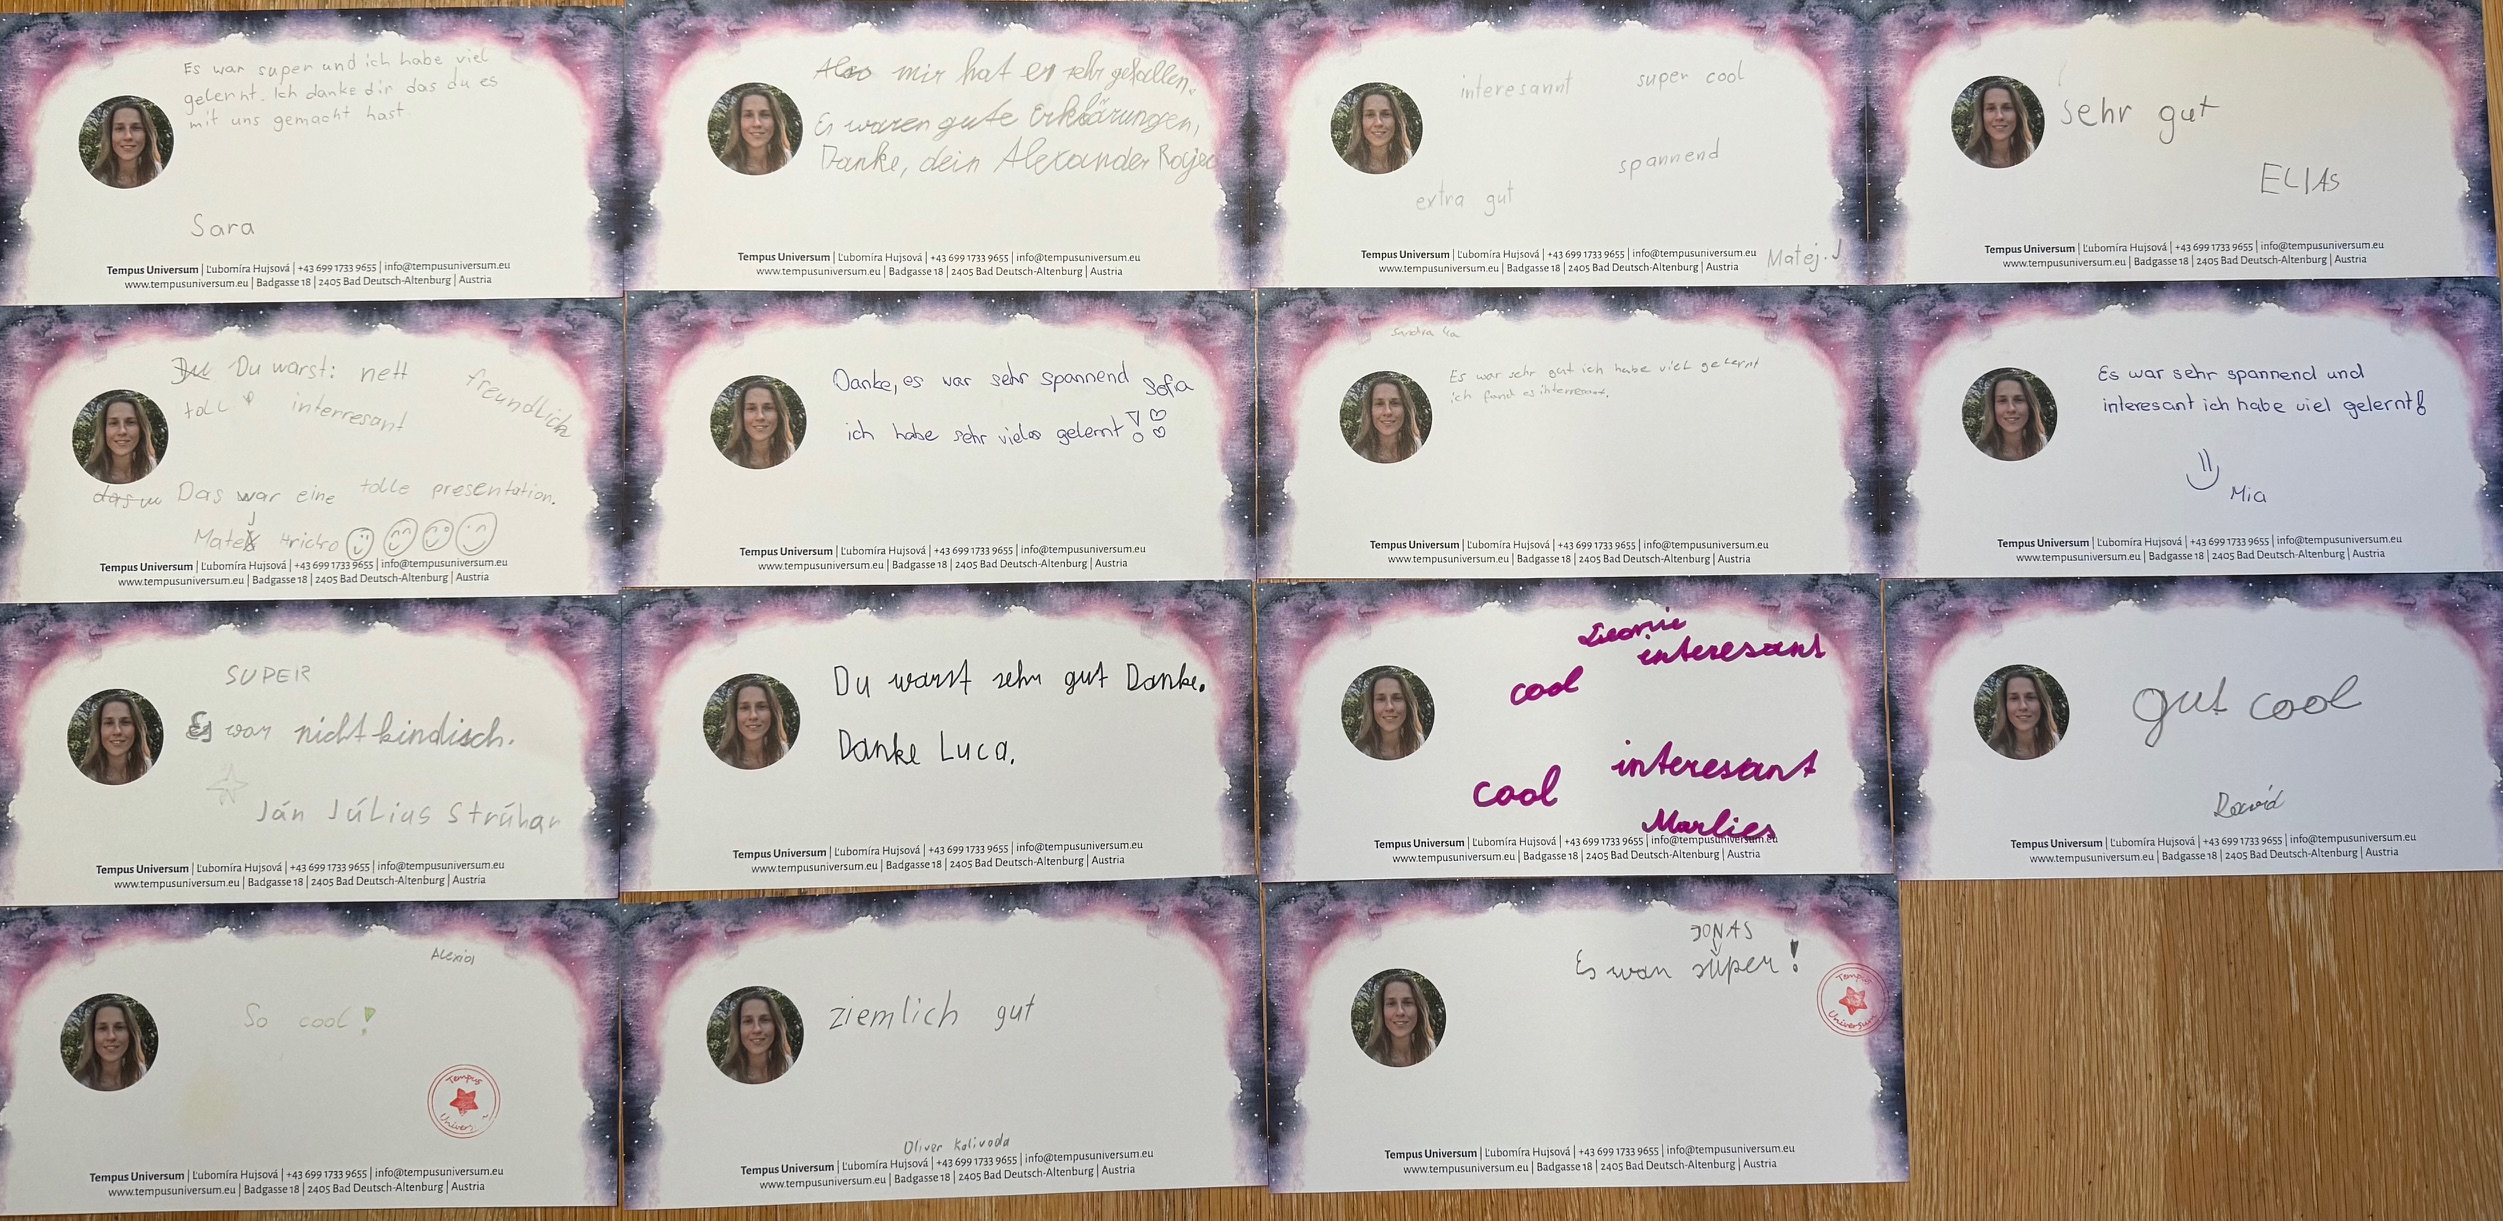 Es war super und ich habe viel
gelernt. Ich danke dir das du es
mit uns gemacht hast
Sara
Tempus Universum | Ľubomíra Hujsová | +43 699 1733 9655 | info@tempusuniversum.eu
www.tempusuniversum.eu | Badgasse 18 | 2405 Bad Deutsch-Altenburg | Austria
Also mir hat es sehr gefallen.
Es waren gute Erklärungen,
Danke, dein Alexander
Tempus Universum | Ľubomíra Hujsová | +43 699 1733 9655 | info@tempusuniversum.eu
www.tempusuniversum.eu | Badgasse 18 | 2405 Bad Deutsch-Altenburg | Austria
interesannt super cool
spannend
extra gut
Matej. J
Tempus Universum | Ľubomíra Hujsová | +43 699 1733 9655 | info@tempusuniversum.eu
www.tempusuniversum.eu | Badgasse 18 | 2405 Bad Deutsch-Altenburg | Austria
sehr gut
ELIAS
Tempus Universum | Ľubomíra Hujsová | +43 699 1733 9655 | info@tempusuniversum.eu
www.tempusuniversum.eu | Badgasse 18 | 2405 Bad Deutsch-Altenburg | Austria
Du Du warst: nett freundlich
toll interresant
Das war eine tolle presentation.
Matej Hricko
Tempus Universum | Ľubomíra Hujsová | +43 699 1733 9655 | info@tempusuniversum.eu
www.tempusuniversum.eu | Badgasse 18 | 2405 Bad Deutsch-Altenburg | Austria
Danke, es war sehr spannend Sofa
ich habe sehr vieles gelernt!
Tempus Universum | Ľubomíra Hujsová | +43 699 1733 9655 | info@tempusuniversum.eu
www.tempusuniversum.eu | Badgasse 18 | 2405 Bad Deutsch-Altenburg | Austria
Sandra 4a
Es war sehr gut ich habe viel gelernt
ich fand es interresant.
Tempus Universum | Ľubomíra Hujsová | +43 699 1733 9655 | info@tempusuniversum.eu
www.tempusuniversum.eu | Badgasse 18 | 2405 Bad Deutsch-Altenburg | Austria
Es war sehr spannend und
interesant ich habe viel gelernt!
Mia
Tempus Universum | Ľubomíra Hujsová | +43 699 1733 9655 | info@tempusuniversum.eu
www.tempusuniversum.eu | Badgasse 18 | 2405 Bad Deutsch-Altenburg | Austria
SUPER
Es war nicht kindisch.
Ján Július Strúhar
Tempus Universum | Ľubomíra Hujsová | +43 699 1733 9655 | info@tempusuniversum.eu
www.tempusuniversum.eu | Badgasse 18 | 2405 Bad Deutsch-Altenburg | Austria
Du warst sehr gut Danke.
Danke Luca.
Tempus Universum | Ľubomíra Hujsová | +43 699 1733 9655 | info@tempusuniversum.eu
www.tempusuniversum.eu | Badgasse 18 | 2405 Bad Deutsch-Altenburg | Austria
Leonie
interesant
cool
interesant
cool
Marlies
Tempus Universum | Ľubomíra Hujsová | +43 699 1733 9655 | info@tempusuniversum.eu
www.tempusuniversum.eu | Badgasse 18 | 2405 Bad Deutsch-Altenburg | Austria
gut cool
David
Tempus Universum | Ľubomíra Hujsová | +43 699 1733 9655 | info@tempusuniversum.eu
www.tempusuniversum.eu | Badgasse 18 | 2405 Bad Deutsch-Altenburg | Austria
Alexios
So cool!
Tempus
Univers
Tempus Universum | Ľubomíra Hujsová | +43 699 1733 9655 | info@tempusuniversum.eu
www.tempusuniversum.eu | Badgasse 18 | 2405 Bad Deutsch-Altenburg | Austria
ziemlich gut
Oliver Kalivoda
Tempus Universum | Ľubomíra Hujsová | +43 699 1733 9655 | info@tempusuniversum.eu
www.tempusuniversum.eu | Badgasse 18 | 2405 Bad Deutsch-Altenburg | Austria
JONAS
Es war super!
Tempus
Universum
Tempus Universum | Ľubomíra Hujsová | +43 699 1733 9655 | info@tempusuniversum.eu
www.tempusuniversum.eu | Badgasse 18 | 2405 Bad Deutsch-Altenburg | Austria